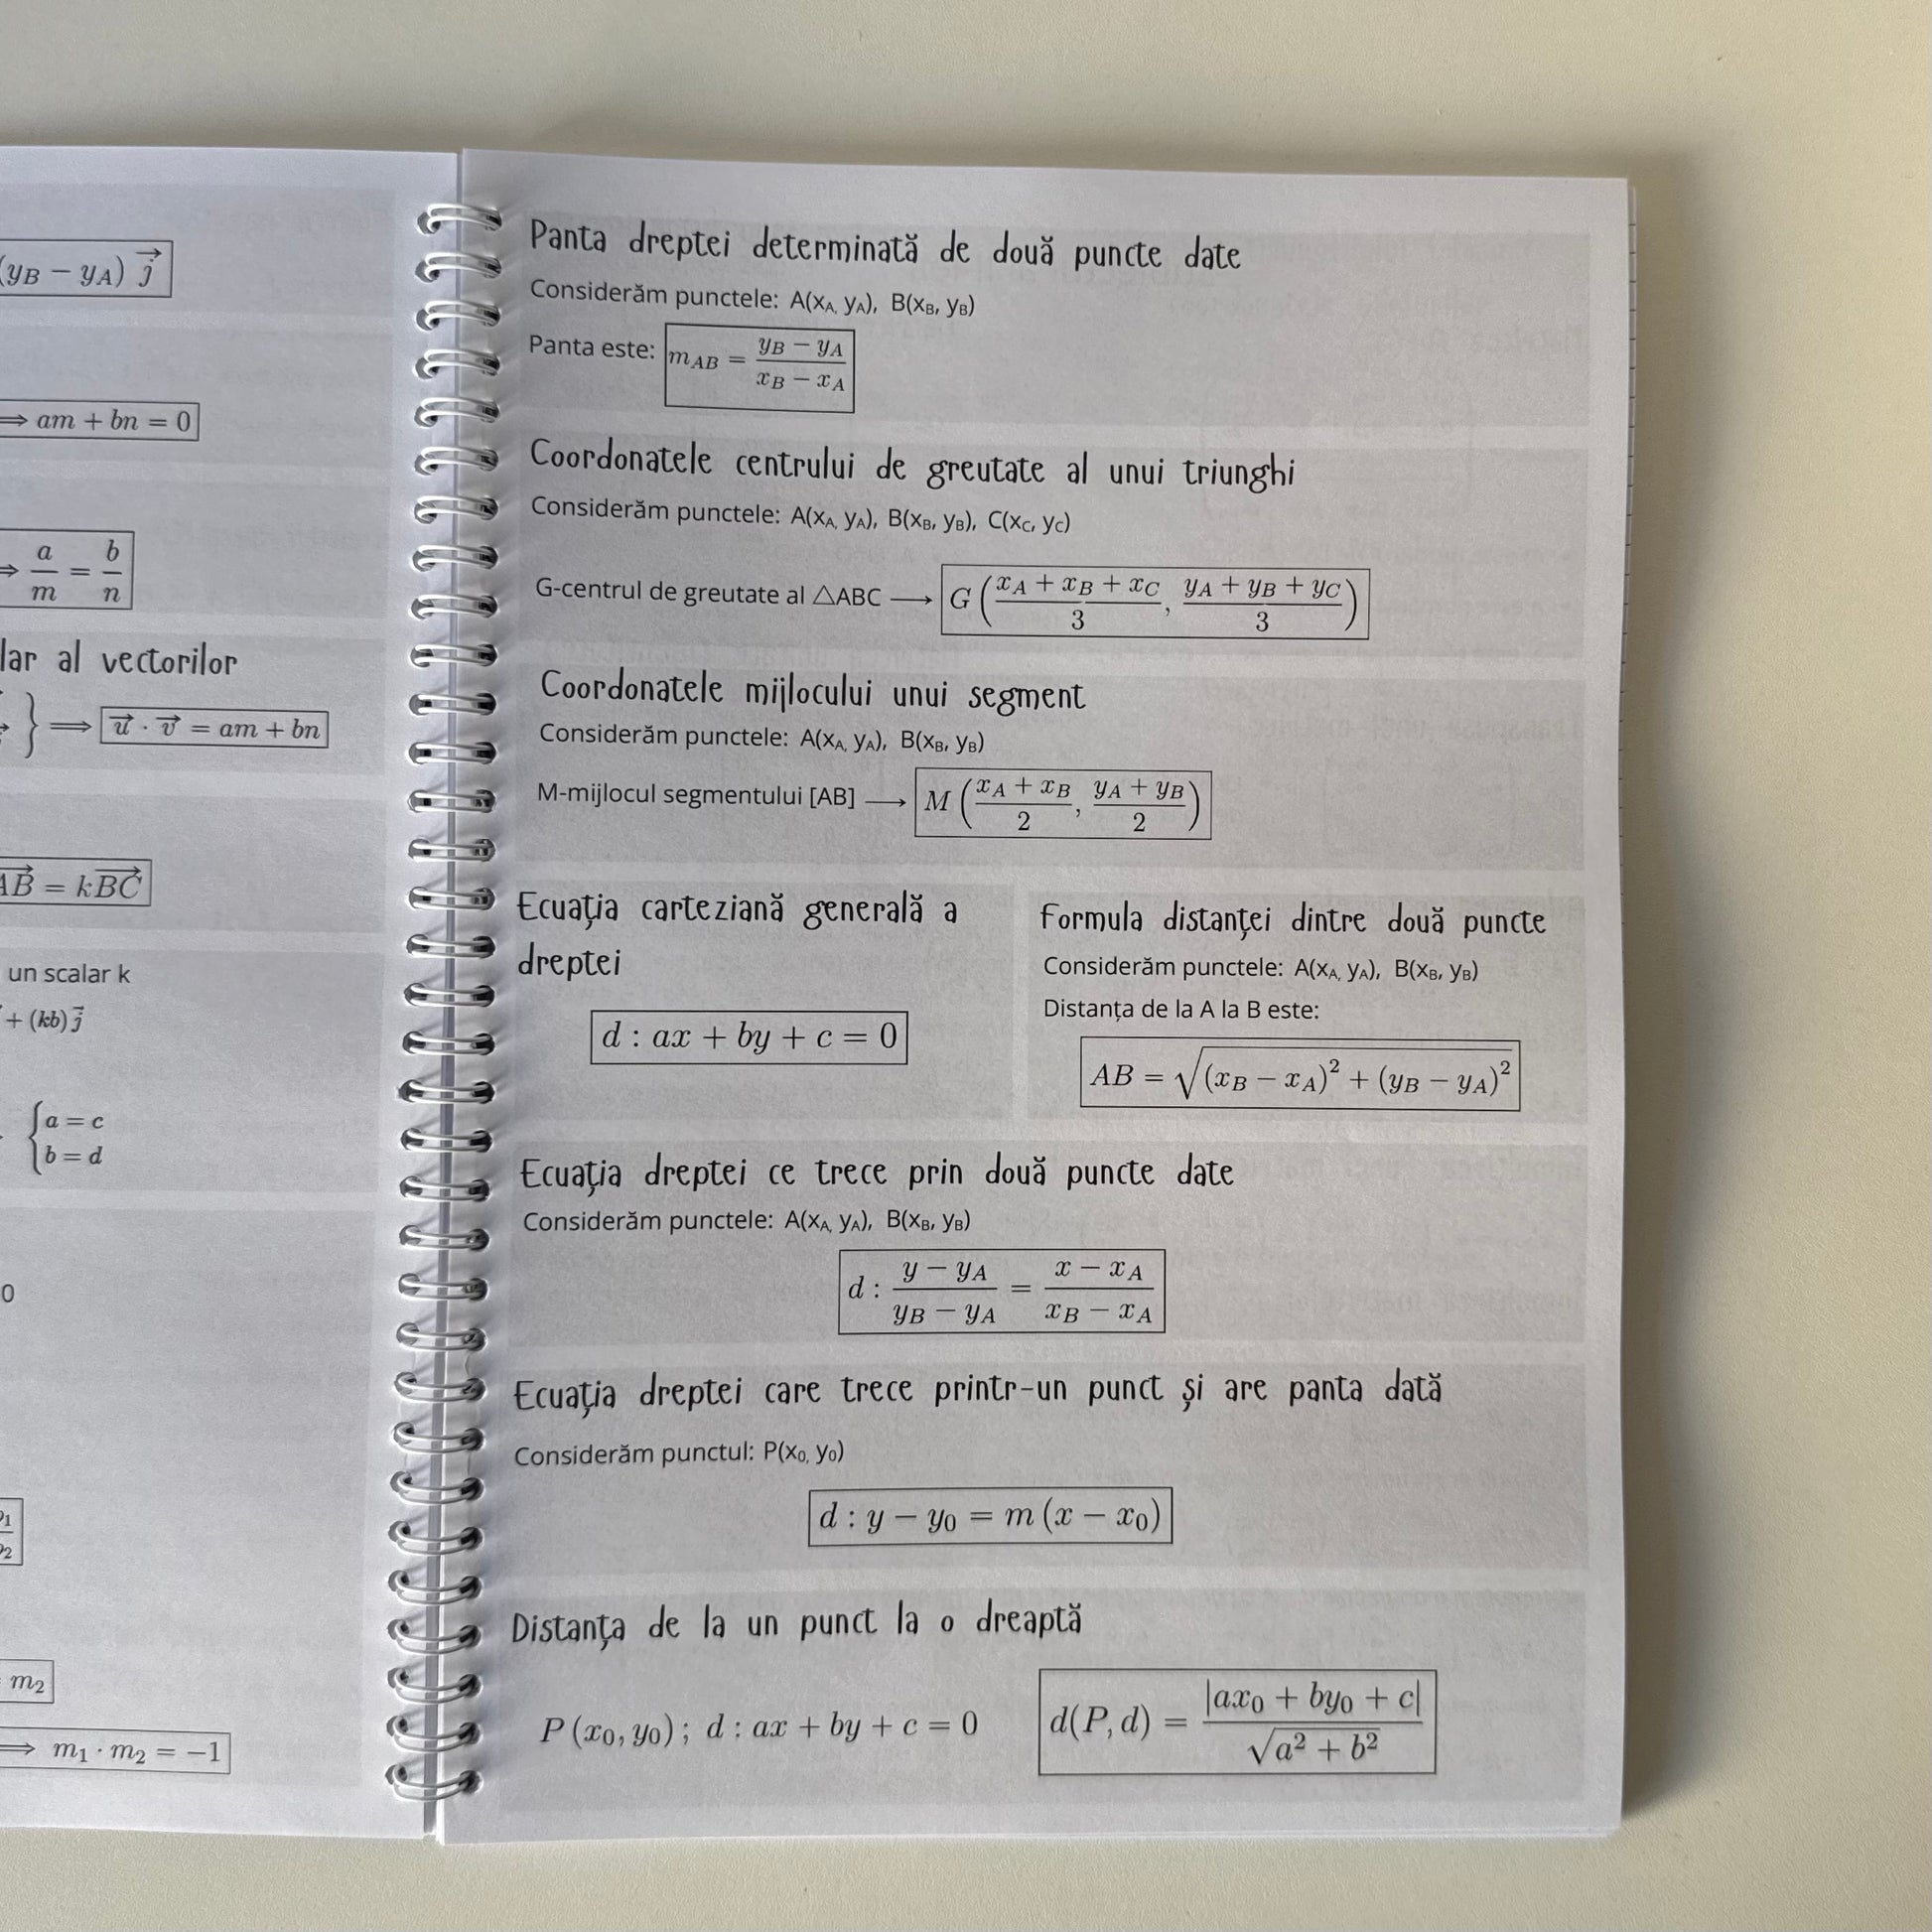 (y_B − y_A) j⃗
⟹ am + bn = 0
⇒ a/m = b/n
lar al vectorilor
} ⟹ u⃗ · v⃗ = am + bn
AB⃗ = kBC⃗
un scalar k
+ (kb) j⃗
{ a = c
b = d
0
m₂
⟹ m₁ · m₂ = −1
Panta dreptei determinată de două puncte date
Considerăm punctele: A(x_A, y_A), B(x_B, y_B)
Panta este: m_AB = (y_B − y_A)/(x_B − x_A)
Coordonatele centrului de greutate al unui triunghi
Considerăm punctele: A(x_A, y_A), B(x_B, y_B), C(x_C, y_C)
G-centrul de greutate al △ABC ⟶ G((x_A + x_B + x_C)/3, (y_A + y_B + y_C)/3)
Coordonatele mijlocului unui segment
Considerăm punctele: A(x_A, y_A), B(x_B, y_B)
M-mijlocul segmentului [AB] ⟶ M((x_A + x_B)/2, (y_A + y_B)/2)
Ecuația carteziană generală a
dreptei
d : ax + by + c = 0
Formula distanței dintre două puncte
Considerăm punctele: A(x_A, y_A), B(x_B, y_B)
Distanța de la A la B este:
AB = √((x_B − x_A)² + (y_B − y_A)²)
Ecuația dreptei ce trece prin două puncte date
Considerăm punctele: A(x_A, y_A), B(x_B, y_B)
d : (y − y_A)/(y_B − y_A) = (x − x_A)/(x_B − x_A)
Ecuația dreptei care trece printr-un punct și are panta dată
Considerăm punctul: P(x₀, y₀)
d : y − y₀ = m (x − x₀)
Distanța de la un punct la o dreaptă
P (x₀, y₀) ; d : ax + by + c = 0
d(P, d) = |ax₀ + by₀ + c|/√(a² + b²)